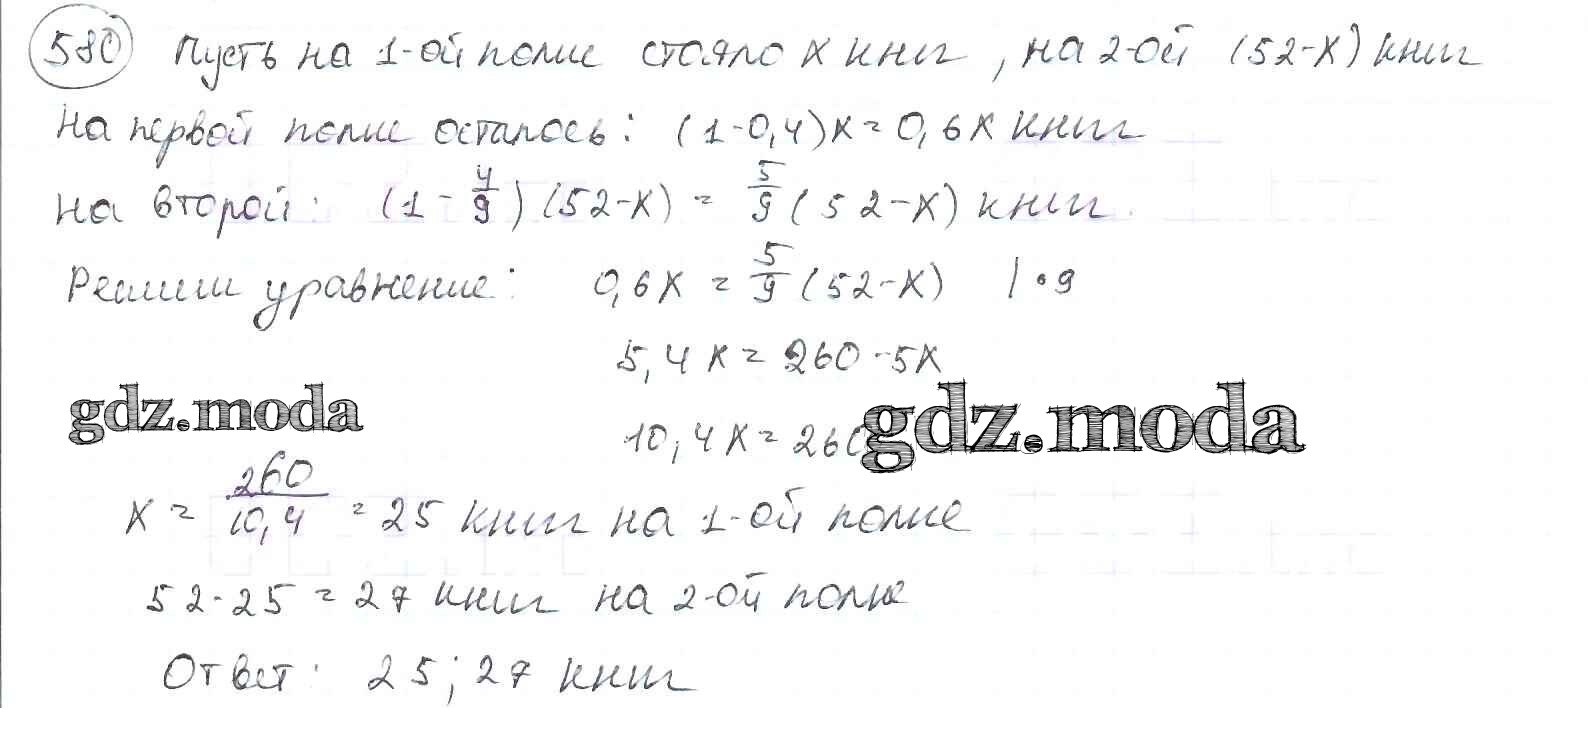 580 Пусть на 1-ой полке стояло x книг, на 2-ой (52-x) книг
На первой полке осталось: (1-0,4)x = 0,6x книг
На второй: (1 - 4/9)(52-x) = 5/9 (52-x) книг.
Решим уравнение: 0,6x = 5/9 (52-x) | • 9
5,4x = 260 - 5x
gdz.moda
10,4x = 260
gdz.moda
x = 260/10,4 = 25 книг на 1-ой полке
52-25 = 27 книг на 2-ой полке
Ответ: 25; 27 книг